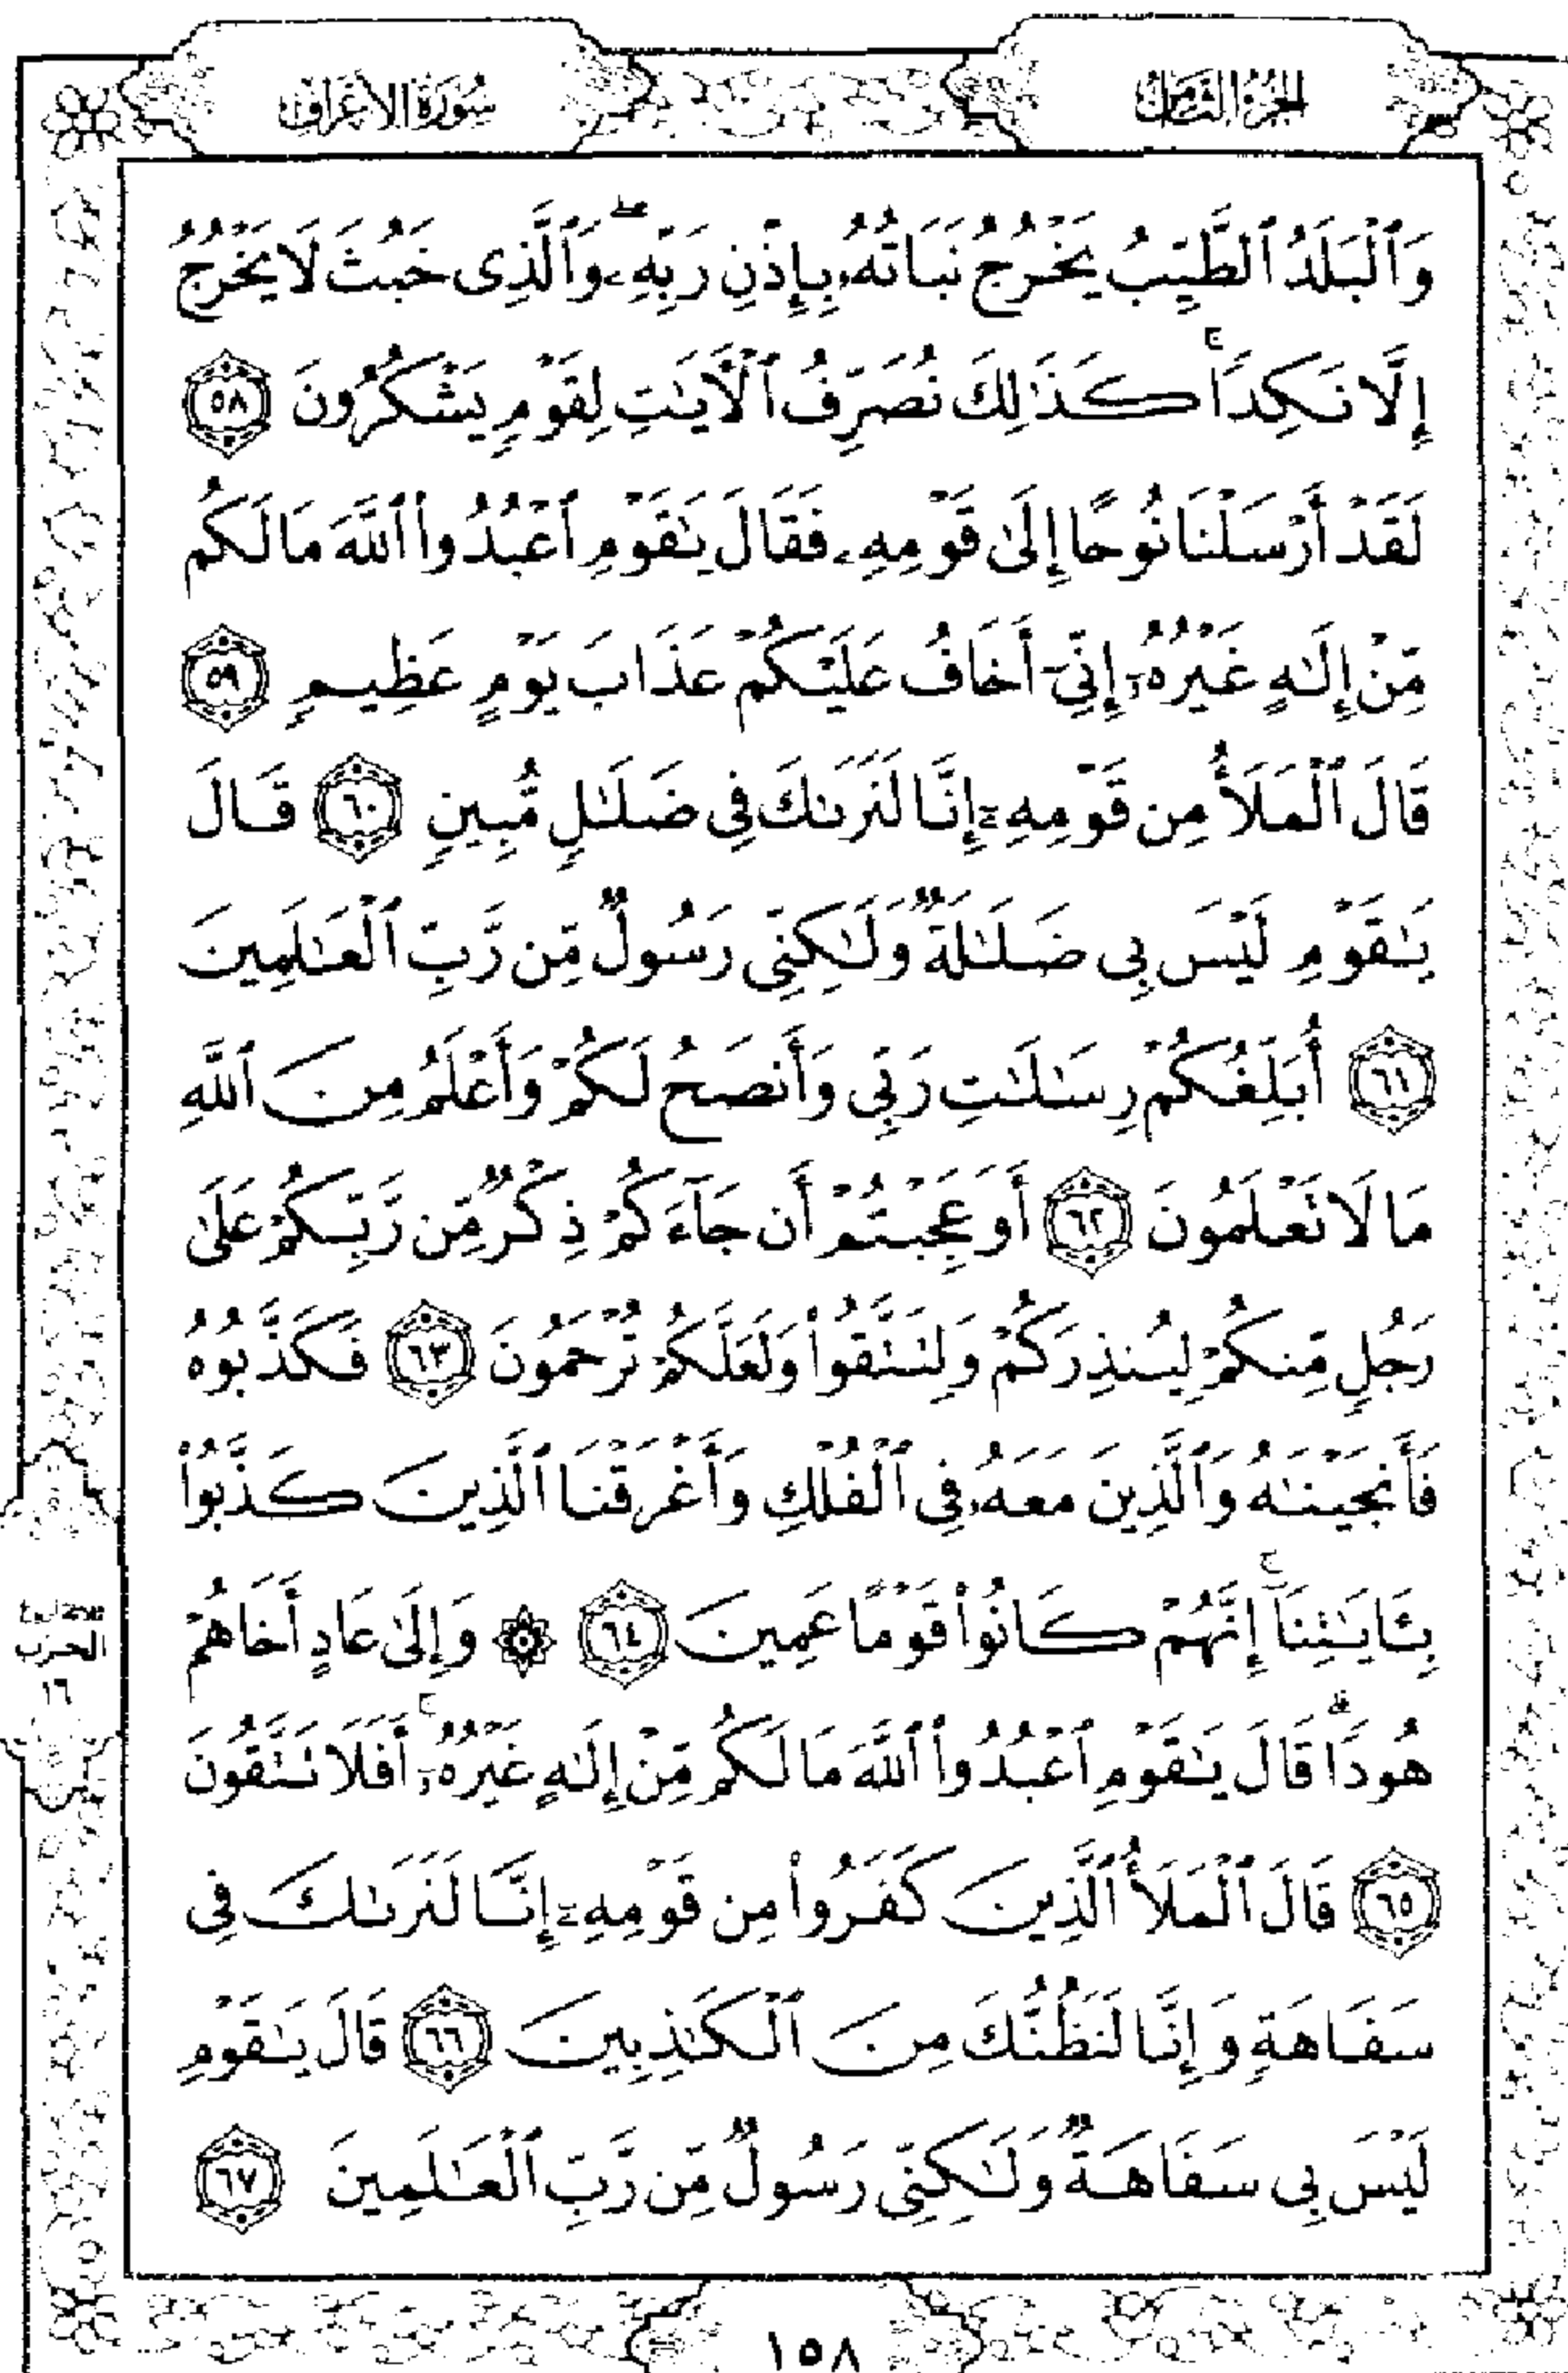 الجزء الثامن
سورة الأعراف
وَٱلْبَلَدُ ٱلطَّيِّبُ يَخْرُجُ نَبَاتُهُۥ بِإِذْنِ رَبِّهِۦ ۖ وَٱلَّذِى خَبُثَ لَا يَخْرُجُ
إِلَّا نَكِدًا ۚ كَذَٰلِكَ نُصَرِّفُ ٱلْـَٔايَـٰتِ لِقَوْمٍ يَشْكُرُونَ ٥٨
لَقَدْ أَرْسَلْنَا نُوحًا إِلَىٰ قَوْمِهِۦ فَقَالَ يَـٰقَوْمِ ٱعْبُدُوا۟ ٱللَّهَ مَا لَكُم
مِّنْ إِلَـٰهٍ غَيْرُهُۥٓ إِنِّىٓ أَخَافُ عَلَيْكُمْ عَذَابَ يَوْمٍ عَظِيمٍ ٥٩
قَالَ ٱلْمَلَأُ مِن قَوْمِهِۦٓ إِنَّا لَنَرَىٰكَ فِى ضَلَـٰلٍ مُّبِينٍ ٦٠ قَالَ
يَـٰقَوْمِ لَيْسَ بِى ضَلَـٰلَةٌ وَلَـٰكِنِّى رَسُولٌ مِّن رَّبِّ ٱلْعَـٰلَمِينَ
٦١ أُبَلِّغُكُمْ رِسَـٰلَـٰتِ رَبِّى وَأَنصَحُ لَكُمْ وَأَعْلَمُ مِنَ ٱللَّهِ
مَا لَا تَعْلَمُونَ ٦٢ أَوَعَجِبْتُمْ أَن جَآءَكُمْ ذِكْرٌ مِّن رَّبِّكُمْ عَلَىٰ
رَجُلٍ مِّنكُمْ لِيُنذِرَكُمْ وَلِتَتَّقُوا۟ وَلَعَلَّكُمْ تُرْحَمُونَ ٦٣ فَكَذَّبُوهُ
فَأَنجَيْنَـٰهُ وَٱلَّذِينَ مَعَهُۥ فِى ٱلْفُلْكِ وَأَغْرَقْنَا ٱلَّذِينَ كَذَّبُوا۟
بِـَٔايَـٰتِنَآ ۚ إِنَّهُمْ كَانُوا۟ قَوْمًا عَمِينَ ٦٤ ۞ وَإِلَىٰ عَادٍ أَخَاهُمْ
هُودًا ۗ قَالَ يَـٰقَوْمِ ٱعْبُدُوا۟ ٱللَّهَ مَا لَكُم مِّنْ إِلَـٰهٍ غَيْرُهُۥٓ ۚ أَفَلَا تَتَّقُونَ
٦٥ قَالَ ٱلْمَلَأُ ٱلَّذِينَ كَفَرُوا۟ مِن قَوْمِهِۦٓ إِنَّا لَنَرَىٰكَ فِى
سَفَاهَةٍ وَإِنَّا لَنَظُنُّكَ مِنَ ٱلْكَـٰذِبِينَ ٦٦ قَالَ يَـٰقَوْمِ
لَيْسَ بِى سَفَاهَةٌ وَلَـٰكِنِّى رَسُولٌ مِّن رَّبِّ ٱلْعَـٰلَمِينَ ٦٧
الحزب
١٦
١٥٨